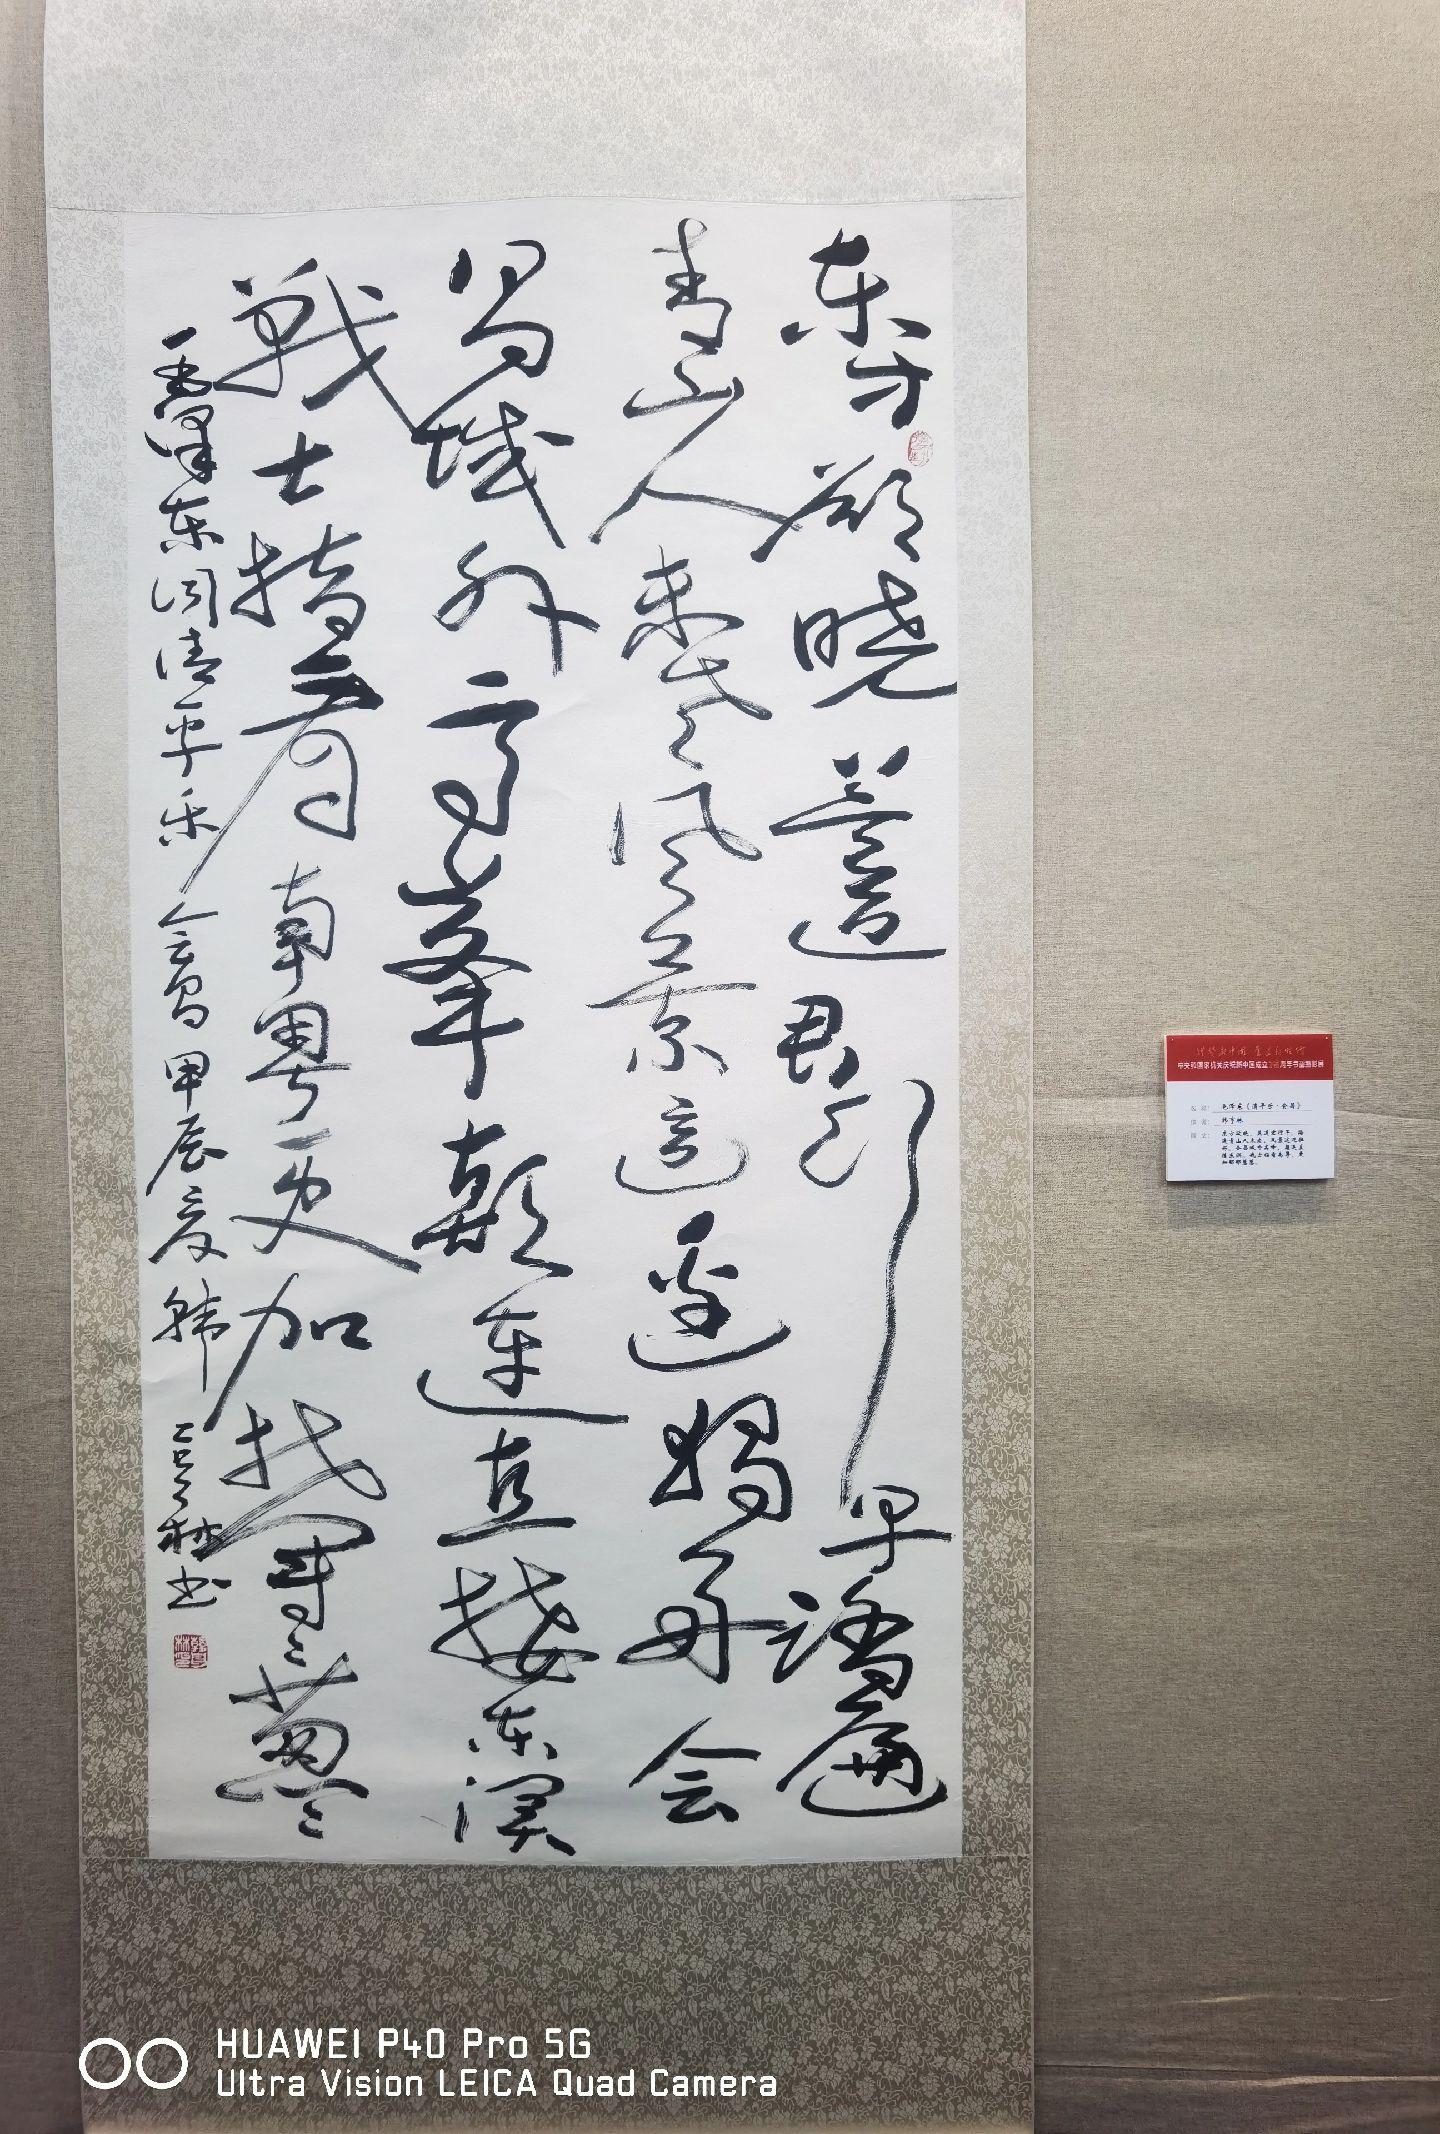 东方欲晓莫道君行早踏遍
青山人未老风景这边独好会
昌城外高峰颠连直接东溟
戰士指看南粤更加郁郁葱葱
毛泽东词清平乐会昌甲辰夏韩亨林书
中央和国家机关庆祝新中国成立75周年书画摄影展
毛泽东《清平乐·会昌》
韩亨林
东方欲晓，莫道君行早。踏
遍青山人未老，风景这边独
好。会昌城外高峰，颠连直
接东溟。战士指看南粤，更
加郁郁葱葱。
HUAWEI P40 Pro 5G
Ultra Vision LEICA Quad Camera